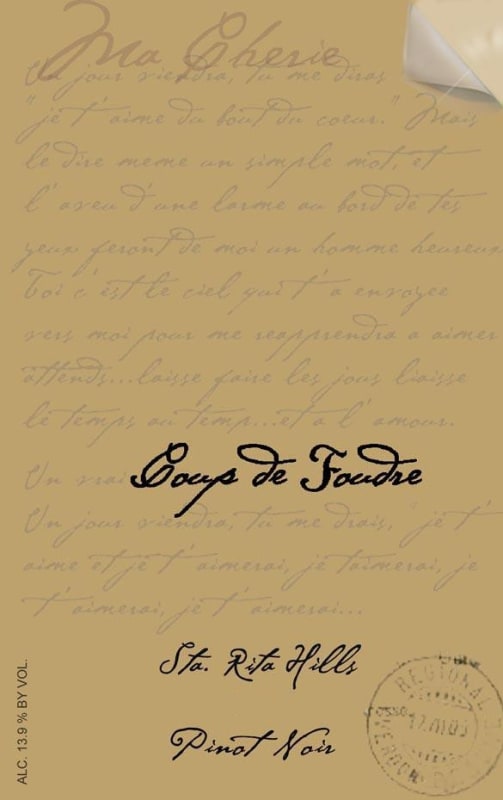 Ma Cherie
Un jour viendra, tu me diras
"je t'aime du bout du coeur." Mais
le dire meme un simple mot, et
l'aveu d'une larme au bord de tes
yeux feront de moi un homme heureux
Toi c'est le ciel qui t'a envoyee
vers moi pour me reapprendra a aimer
attends...laisse faire les jous liaisse
le temps au temp...et a l'amour.
Un vrai
Coup de Foudre
Un jour viendra, tu me drais, "je t'
aime et je t'aimerai, je taimerai, je
t'aimerai, je t'aimerai...
Sta. Rita Hills
Pinot Noir
ALC. 13.9 % BY VOL.
REGIONAL